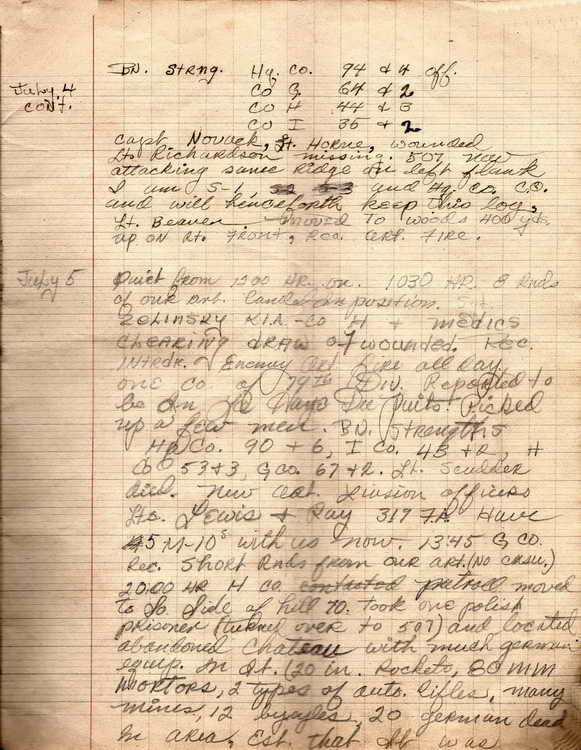 BN. Streng. Hq. Co. 94 & 4 off.
July. 4 Co G 64 & 2
CONT. Co H 44 & 3
Co I 35 & 2
Capt Novack, Lt. Horne, wounded
Lt. Richardson missing. 507 now
attacking same ridge on left flank
I am S-1, S2 S-3 and Hq. Co. C.O.
and will henceforth keep this log,
Lt. Beaver. moved to woods 400 yds.
up on rt. front, Rec. art. fire.
July 5 Quiet from 1200 HR. on. 1030 HR. 8 Rnds
of our art. landed on position.
Zelinsky K.I.A.-Co H & medics
clearing draw of wounded. Rec.
Intrdr. & Enemy art. fire all day
one Co. of 79th Div. Reported to
be in La Haye Du Puits. Picked
up a few men. BN. Strength is
Hq Co. 90 + 6, I Co. 43 + 2, H
Co 53 + 3, G Co. 67 + 2. Lt. Scudder
died. New art. liaison officers
Lts. Lewis & Ray 319 F.A. Have
5 M-10s with us now. 1345 G Co.
Rec. short Rnds from our art. (No casu.)
2000 HR H Co. contacted patrol moved
to So side of hill 70. Took one polish
prisoner (turned over to 507) and located
abandoned Chateau with much german
equip. in it. (20 in. Rockets, 80 MM
mortors, 2 types of auto. rifles, many
mines, 12 bycycles, 20 german dead
in area, Est. that it was